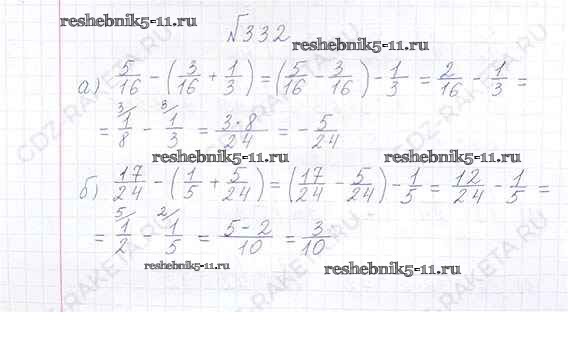 reshebnik5-11.ru
№332
reshebnik5-11.ru
а) 5/16 - (3/16 + 1/3) = (5/16 - 3/16) - 1/3 = 2/16 - 1/3 =
= 3/ 1/8 - 8/ 1/3 = 3*8/24 = - 5/24
reshebnik5-11.ru reshebnik5-11.ru
б) 17/24 - (1/5 + 5/24) = (17/24 - 5/24) - 1/5 = 12/24 - 1/5 =
= 5/ 1/2 - 2/ 1/5 = 5-2/10 = 3/10
reshebnik5-11.ru reshebnik5-11.ru
GDZ-RAKETA.RU